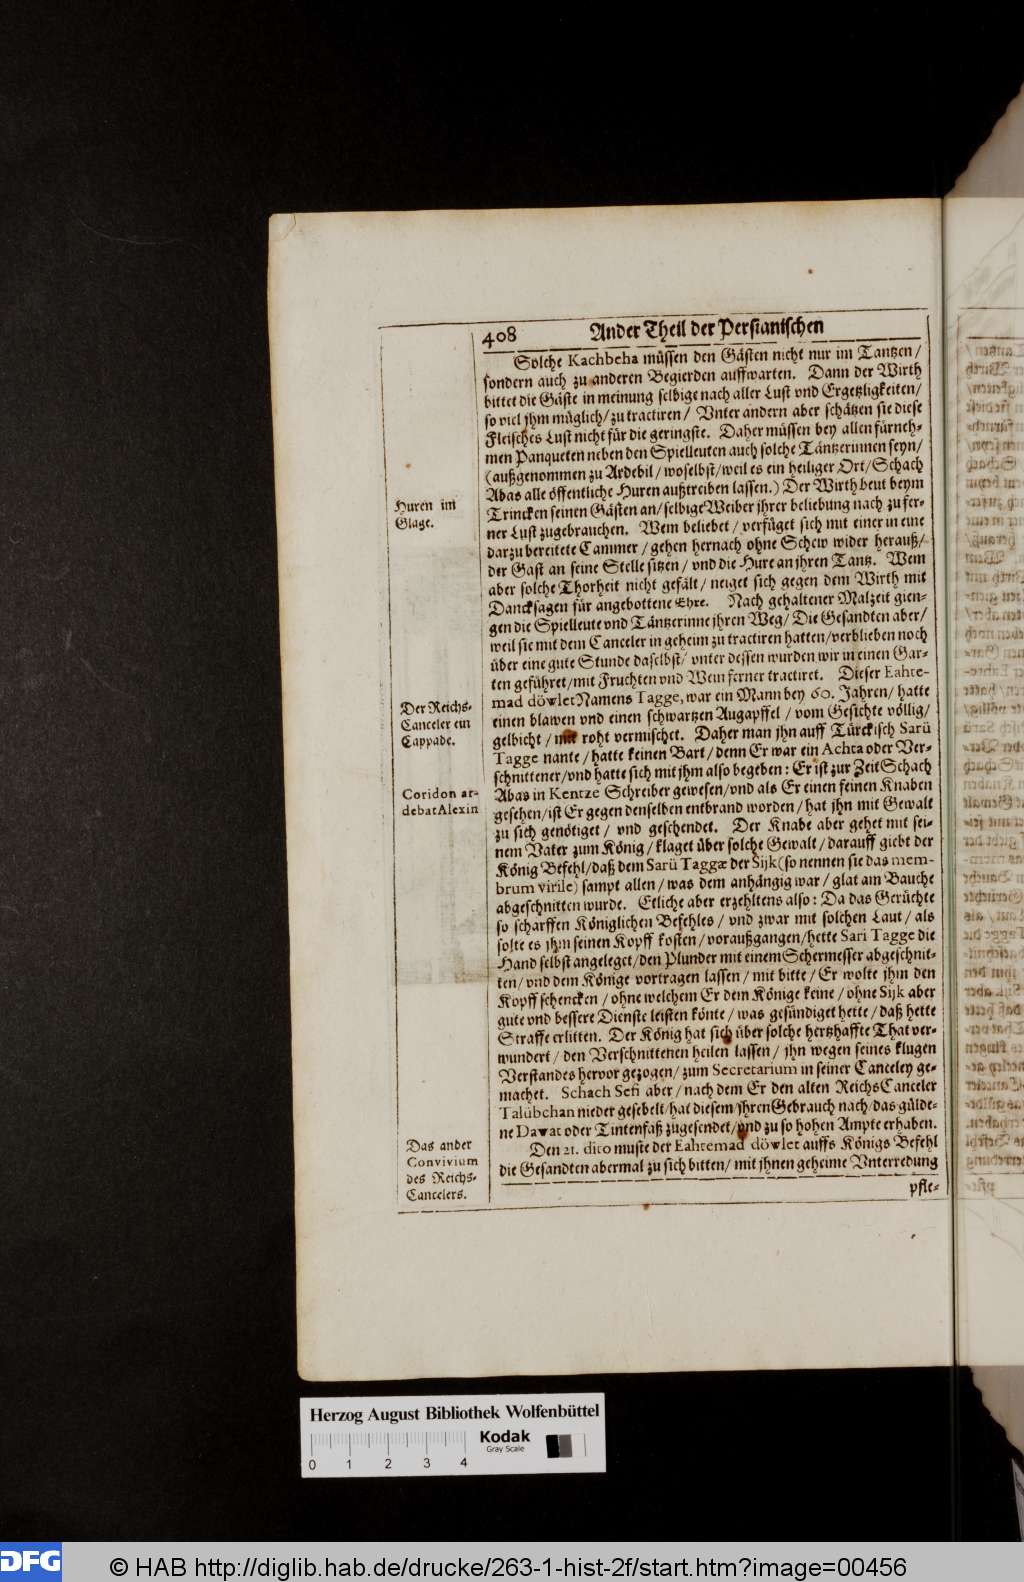 408 Ander Theil der Persianischen
Solche Kachbeha müssen den Gästen nicht nur im Tantzen /
sondern auch zu anderen Begierden auffwarten. Dann der Wirth
bittet die Gäste in meinung selbige nach aller Lust vnd Ergetzligkeiten /
so viel jhm müglich / zu tractiren / Vnter andern aber schätzen sie diese
Fleisches Lust nicht für die geringste. Daher müssen bey allen fürneh-
men Panqueten neben den Spielleuten auch solche Täntzerinnen seyn /
(außgenommen zu Ardebil / woselbst / weil es ein heiliger Ort / Schach
Abas alle öffentliche Huren außtreiben lassen.) Der Wirth beut beym
Huren im
Glage.
Trincken seinen Gästen an / selbige Weiber jhrer beliebung nach zu fer-
ner Lust zugebrauchen. Wem beliebet / verfüget sich mit einer in eine
darzu bereitete Cammer / gehen hernach ohne Schew wider herauß /
der Gast an seine Stelle sitzen / vnd die Hure an jhren Tantz. Wem
aber solche Thorheit nicht gefält / neiget sich gegen dem Wirth mit
Dancksagen für angebottene Ehre. Nach gehaltener Malzeit gien-
gen die Spielleute vnd Täntzerinne jhren Weg / Die Gesandten aber /
weil sie mit dem Canceler in geheim zu tractiren hatten / verblieben noch
über eine gute Stunde daselbst / vnter dessen wurden wir in einen Gar-
ten geführet / mit Fruchten vnd Wein ferner tractiret. Dieser Eahte-
mad döwlet Namens Tagge, war ein Mann bey 60. Jahren / hatte
Der Reichs-
Canceler ein
Cappade.
einen blawen vnd einen schwartzen Augapffel / vom Gesichte völlig /
gelbicht / mit roht vermischet. Daher man jhn auff Türckisch Sarü
Tagge nante / hatte keinen Bart / denn Er war ein Achta oder Ver-
schnittener / vnd hatte sich mit jhm also begeben: Er ist zur Zeit Schach
Coridon ar-
debat Alexin
Abas in Kentze Schreiber gewesen / vnd als Er einen feinen Knaben
gesehen / ist Er gegen denselben entbrand worden / hat jhn mit Gewalt
zu sich genötiget / vnd geschendet. Der Knabe aber gehet mit sei-
nem Vater zum König / klaget über solche Gewalt / darauff giebt der
König Befehl / daß dem Sarü Taggæ der Sijk (so nennen sie das mem-
brum virile) sampt allen / was dem anhängig war / glat am Bauche
abgeschnitten wurde. Etliche aber erzehltens also: Da das Gerüchte
so scharffen Königlichen Befehles / vnd zwar mit solchen Laut / als
solte es jhm seinen Kopff kosten / voraußgangen / hette Sari Tagge die
Hand selbst angeleget / den Plunder mit einem Schermesser abgeschnit-
ten / vnd dem Könige vortragen lassen / mit bitte / Er wolte jhm den
Kopff schencken / ohne welchem Er dem Könige keine / ohne Sijk aber
gute vnd bessere Dienste leisten könte / was gesündiget hette / daß hette
Straffe erlitten. Der König hat sich über solche hertzhaffte That ver-
wundert / den Verschnittenen heilen lassen / jhn wegen seines klugen
Verstandes hervor gezogen / zum Secretarium in seiner Canceley ge-
machet. Schach Sefi aber / nach dem Er den alten ReichsCanceler
Talübchan nieder gesebelt / hat diesem / jhren Gebrauch nach / das gülde-
ne Dawat oder Tintenfaß zugesendet / vnd zu so hohen Ampte erhaben.
Das ander
Convivium
des Reichs-
Cancelers.
Den 21. dito muste der Eahtemad döwlet auffs Königs Befehl
die Gesandten abermal zu sich bitten / mit jhnen geheime Vnterredung
pfle-
Herzog August Bibliothek Wolfenbüttel
Kodak
Gray Scale
0 1 2 3 4
DFG
© HAB http://diglib.hab.de/drucke/263-1-hist-2f/start.htm?image=00456